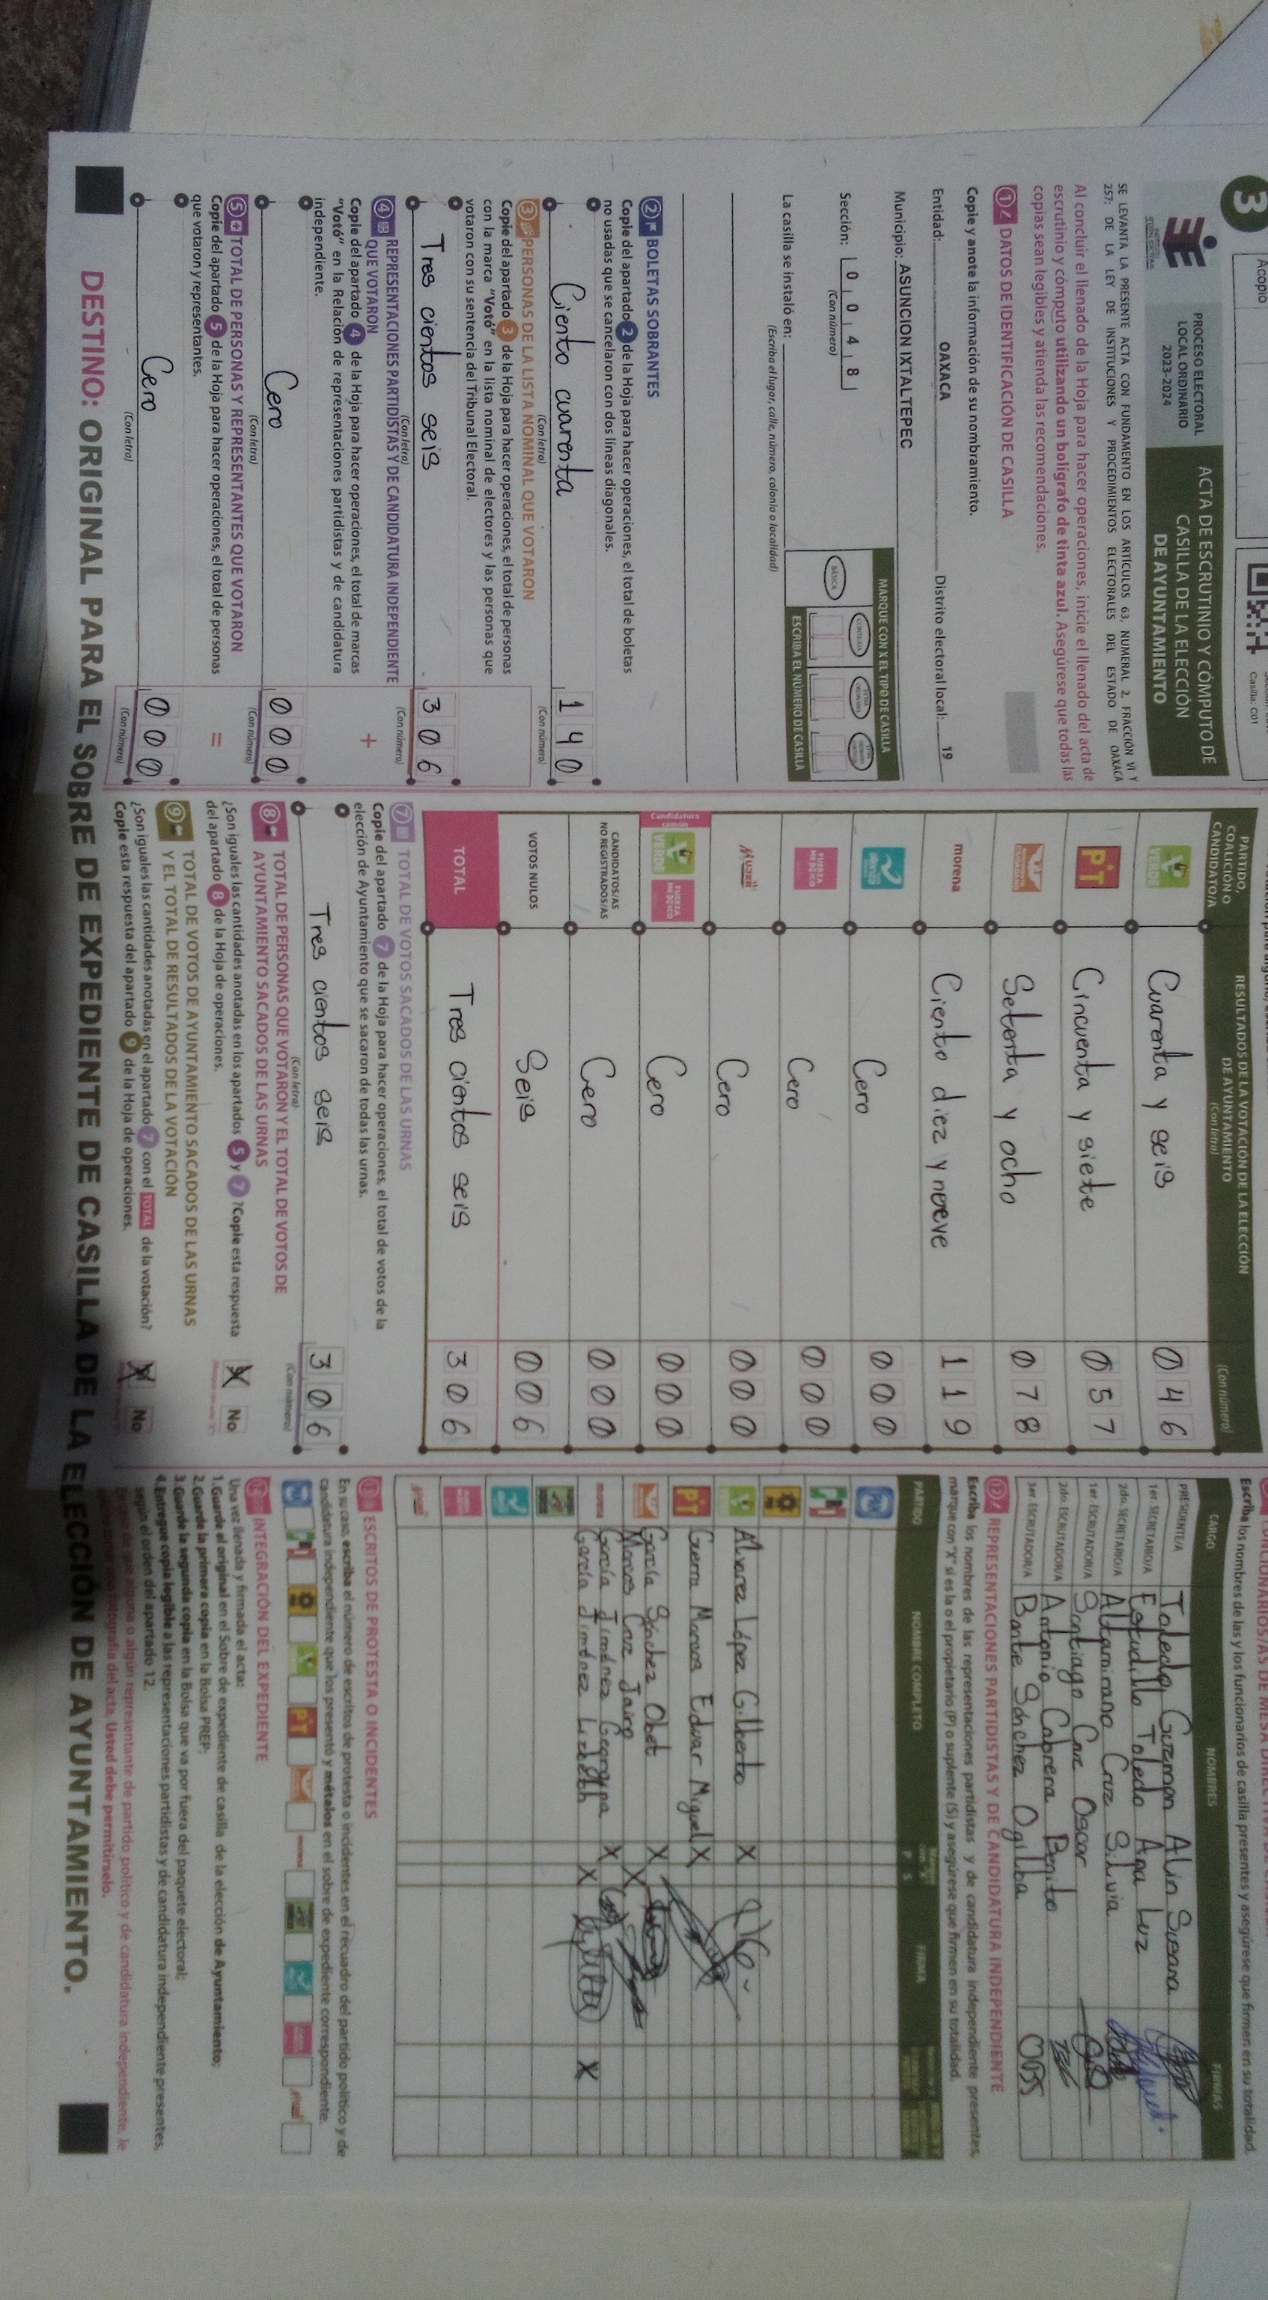 3
Acopio
Casilla: C01
PROCESO ELECTORAL
LOCAL ORDINARIO
2023-2024
ACTA DE ESCRUTINIO Y CÓMPUTO DE
CASILLA DE LA ELECCIÓN
DE AYUNTAMIENTO
SE LEVANTA LA PRESENTE ACTA CON FUNDAMENTO EN LOS ARTÍCULOS 63, NUMERAL 2, FRACCIÓN VI Y
257; DE LA LEY DE INSTITUCIONES Y PROCEDIMIENTOS ELECTORALES DEL ESTADO DE OAXACA
Al concluir el llenado de la Hoja para hacer operaciones, inicie el llenado del acta de
escrutinio y cómputo utilizando un bolígrafo de tinta azul. Asegúrese que todas las
copias sean legibles y atienda las recomendaciones.
1 DATOS DE IDENTIFICACIÓN DE CASILLA
Copie y anote la información de su nombramiento.
Entidad: OAXACA Distrito electoral local: 19
Municipio: ASUNCION IXTALTEPEC
Sección: 0 0 4 8
(Con número)
MARQUE CON X EL TIPO DE CASILLA
BÁSICA
ESCRIBA EL NÚMERO DE CASILLA
La casilla se instaló en:
(Escriba el lugar, calle, número, colonia o localidad)
2 BOLETAS SOBRANTES
Copie del apartado 2 de la Hoja para hacer operaciones, el total de boletas
no usadas que se cancelaron con dos líneas diagonales.
Ciento cuarenta 1 4 0
(Con letra) (Con número)
3 PERSONAS DE LA LISTA NOMINAL QUE VOTARON
Copie del apartado 3 de la Hoja para hacer operaciones, el total de personas
con la marca "Votó" en la lista nominal de electores y las personas que
votaron con su sentencia del Tribunal Electoral.
Tres cientos seis 3 0 6
(Con letra) (Con número)
4 REPRESENTACIONES PARTIDISTAS Y DE CANDIDATURA INDEPENDIENTE
QUE VOTARON
Copie del apartado 4 de la Hoja para hacer operaciones, el total de marcas
"Votó" en la Relación de representaciones partidistas y de candidatura
independiente.
+
Cero 0 0 0
(Con letra) (Con número)
5 TOTAL DE PERSONAS Y REPRESENTANTES QUE VOTARON
Copie del apartado 5 de la Hoja para hacer operaciones, el total de personas
que votaron y representantes.
=
Cero 0 0 0
(Con letra) (Con número)
PARTIDO,
COALICIÓN O
CANDIDATO/A
RESULTADOS DE LA VOTACIÓN DE LA ELECCIÓN
DE AYUNTAMIENTO
(Con letra) (Con número)
VERDE Cuarenta y seis 0 4 6
PT Cincuenta y siete 0 5 7
Setenta y ocho 0 7 8
morena Ciento diez y nueve 1 1 9
Cero 0 0 0
FUERZA MÉXICO Cero 0 0 0
MUJER Cero 0 0 0
Candidatura común
VERDE FUERZA MÉXICO Cero 0 0 0
CANDIDATOS/AS
NO REGISTRADOS/AS Cero 0 0 0
VOTOS NULOS Seis 0 0 6
TOTAL Tres cientos seis 3 0 6
7 TOTAL DE VOTOS SACADOS DE LAS URNAS
Copie del apartado 7 de la Hoja para hacer operaciones, el total de votos de la
elección de Ayuntamiento que se sacaron de todas las urnas.
Tres cientos seis 3 0 6
(Con letra) (Con número)
8 TOTAL DE PERSONAS QUE VOTARON Y EL TOTAL DE VOTOS DE
AYUNTAMIENTO SACADOS DE LAS URNAS
¿Son iguales las cantidades anotadas en los apartados 5 y 7? Copie esta respuesta
del apartado 8 de la Hoja de operaciones.
No
9 TOTAL DE VOTOS DE AYUNTAMIENTO SACADOS DE LAS URNAS
Y EL TOTAL DE RESULTADOS DE LA VOTACIÓN
¿Son iguales las cantidades anotadas en el apartado 7 con el TOTAL de la votación?
Copie esta respuesta del apartado 9 de la Hoja de operaciones.
No
Escriba los nombres de las y los funcionarios de casilla presentes y asegúrese que firmen en su totalidad.
CARGO NOMBRES FIRMAS
PRESIDENTE/A Toledo Guzman Alin Susana
1er. SECRETARIO/A Estudillo Toledo Ana Luz
2do. SECRETARIO/A Altamirano Cruz Silvia
1er. ESCRUTADOR/A Santiago Caz Oscar
2do. ESCRUTADOR/A Antonio Cabrera Benito
3er. ESCRUTADOR/A Bante Sánchez Ogilba
12 REPRESENTACIONES PARTIDISTAS Y DE CANDIDATURA INDEPENDIENTE
Escriba los nombres de las representaciones partidistas y de candidatura independiente presentes,
marque con "X" si es la o el propietario (P) o suplente (S) y asegúrese que firmen en su totalidad.
PARTIDO NOMBRE COMPLETO P S FIRMA
Alvarez López Gilberto X
PT Guerra Marcos Eduar Miguel X
García Sánchez Obet X
Marcos Caz Jairo X
morena García Jiménez Georgina X
García Jiménez Lizbeth X X
13 ESCRITOS DE PROTESTA O INCIDENTES
En su caso, escriba el número de escritos de protesta o incidentes en el recuadro del partido político y de
candidatura independiente que los presentó y métalos en el sobre de expediente correspondiente.
INTEGRACIÓN DEL EXPEDIENTE
Una vez llenada y firmada el acta:
1. Guarde el original en el Sobre de expediente de casilla de la elección de Ayuntamiento;
2. Guarde la primera copia en la Bolsa PREP;
3. Guarde la segunda copia en la Bolsa que va por fuera del paquete electoral;
4. Entregue copia legible a las representaciones partidistas y de candidatura independiente presentes,
según el orden del apartado 12.
representante de partido político y de candidatura independiente, le
fotografía del acta. Usted debe permitírselo.
DESTINO: ORIGINAL PARA EL SOBRE DE EXPEDIENTE DE CASILLA DE LA ELECCIÓN DE AYUNTAMIENTO.